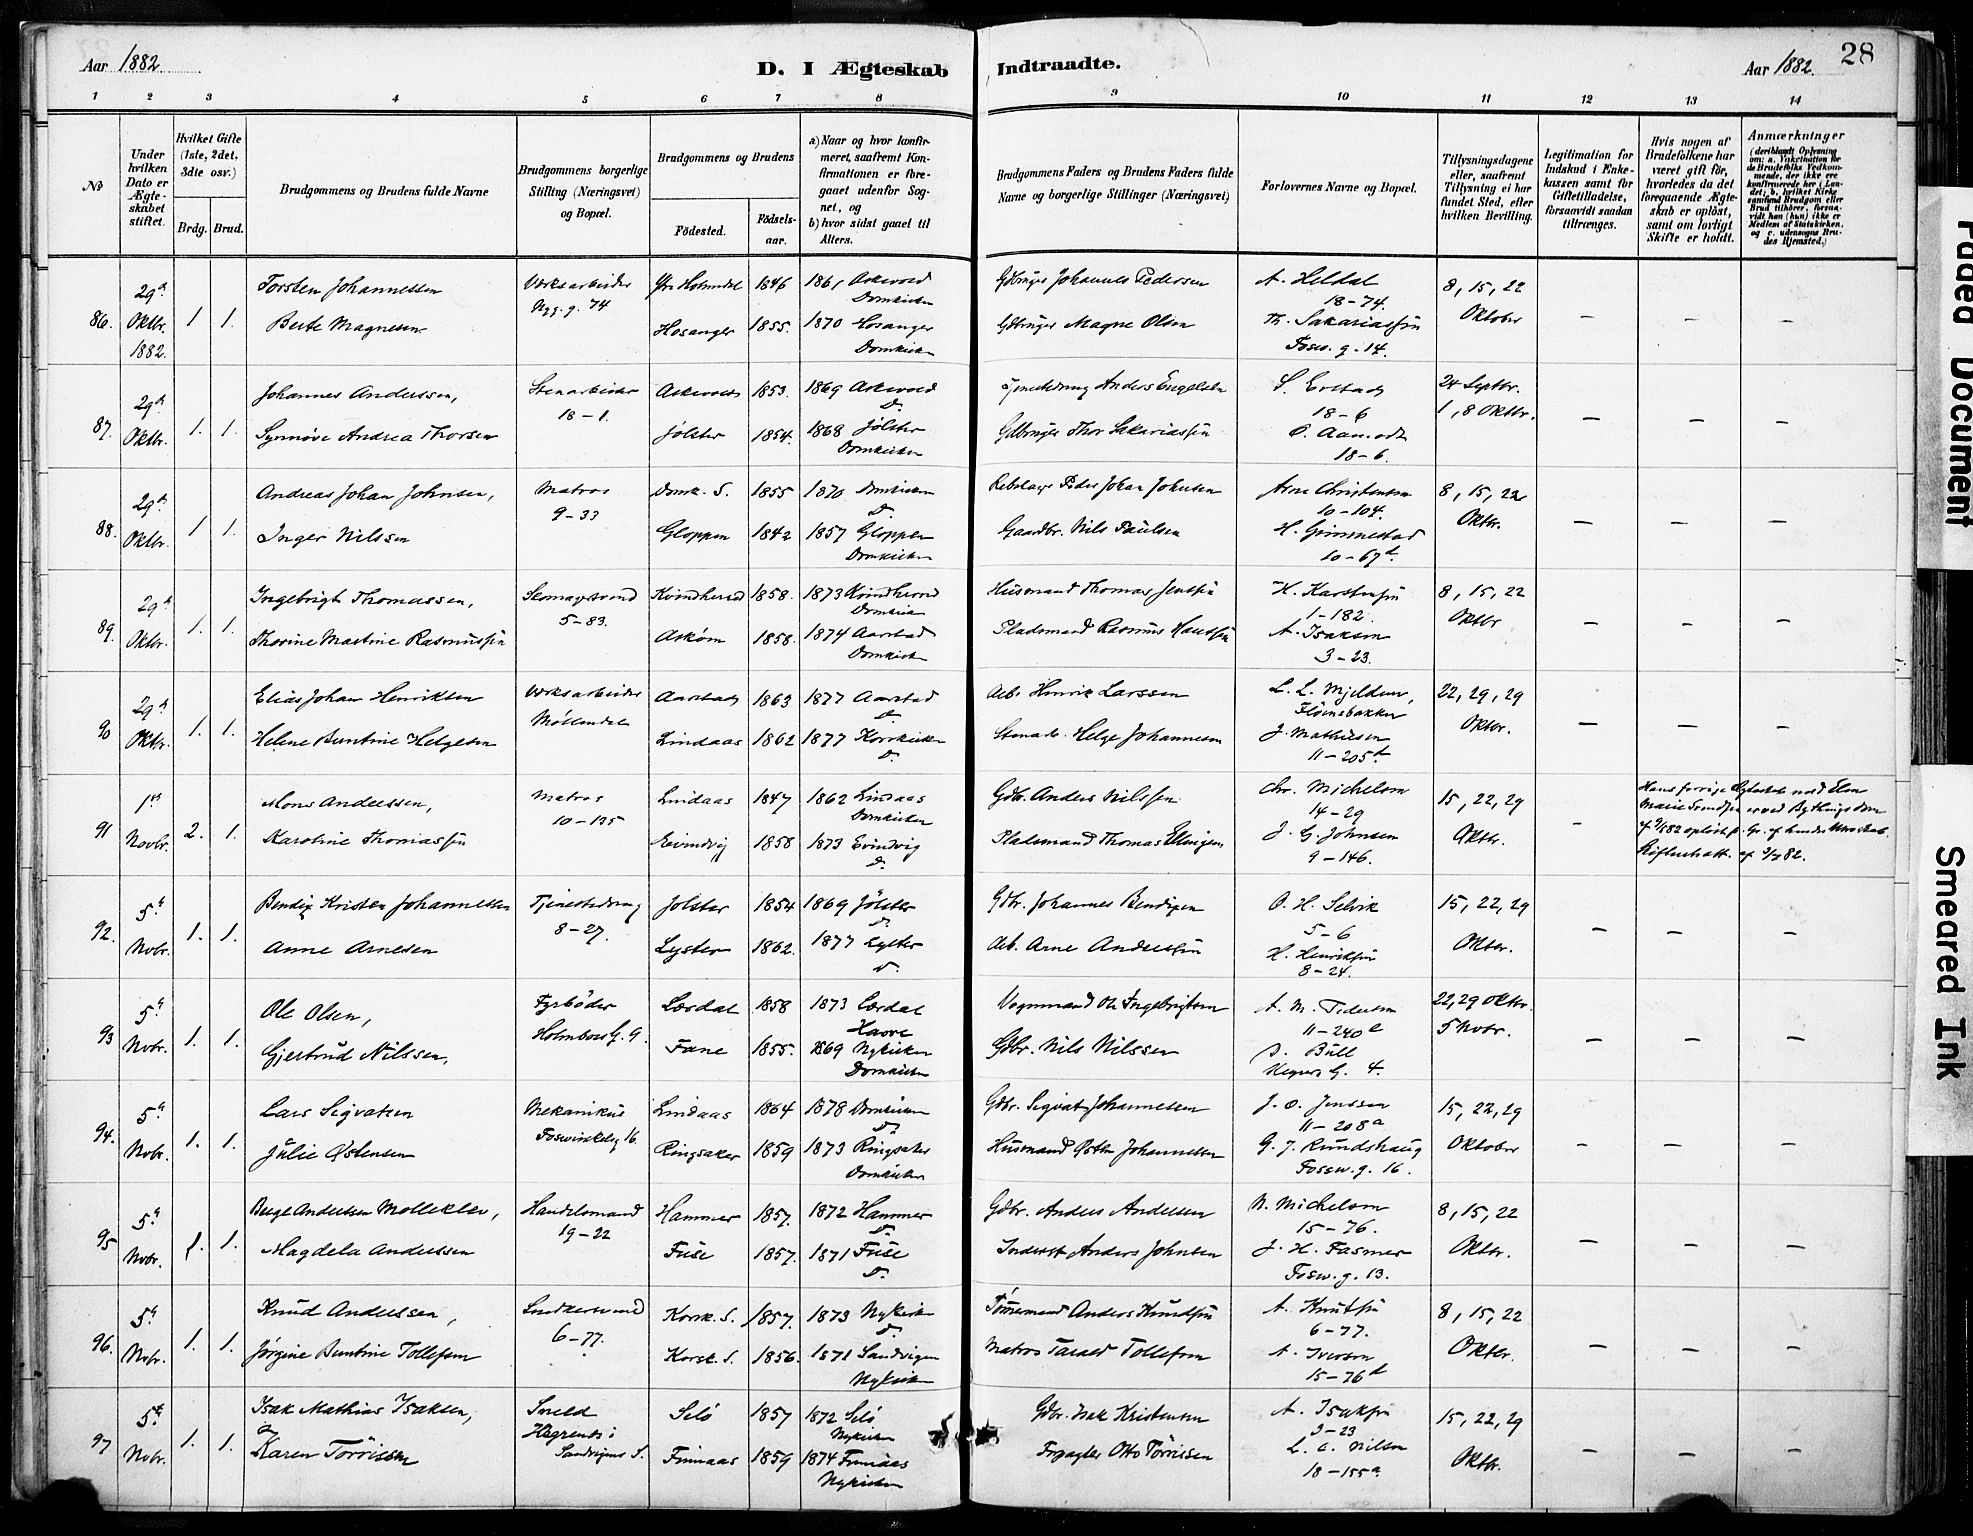 Aar 1882
D. I Ægteskab Indtraadte.
Aar 1882.
28
1 2 3 4 5 6 7 8 9 10 11 12 13 14
No
Under hvilken Dato er Ægteskabet stiftet.
Hvilket Gifte (1ste, 2det, 3dte osv.)
Brdg. Brud.
Brudgommens og Brudens fulde Navne
Brudgommens borgerlige Stilling (Næringsvei) og Bopæl.
Brudgommens og Brudens
Födested. Födselsaar.
a) Naar og hvor konfirmeret, saafremt Konfirmationen er foregaaet udenfor Sognet, og
b) hvor sidst gaaet til Alters.
Brudgommens Faders og Brudens Faders fulde Navne og borgerlige Stillinger (Næringsvei)
Forlovernes Navne og Bopæl.
Tillysningsdagene eller, saafremt Tillysning ei har fundet Sted, efter hvilken Bevilling.
Legitimation for Indskud i Enkekassen samt for Giftetilladelse, forsaavidt saadan tiltrænges.
Hvis nogen af Brudefolkene har været gift før, hvorledes da det foregaaende Ægteskab er opløst, samt om lovligt Skifte er holdt.
Anmærkninger (deriblandt Oplysning om: a. Vakcination for de Brudefolks Vedkommende, der ikke ere konfirmerede her i Landet; b. hvilket Kirkesamfund Brudgom eller Brud tilhører, forsaavidt han (hun) ikke er Medlem af Statskirken, og c. udensogns Brudes Hjemsted.)
86. 29d Oktbr. 1882. 1 1. Torsten Johannessen Værksarbeider 1846 1861 Askevold Domkirken Gdbruger Johannes Pedersen A. Heldal 18-74. 8, 15, 22 Oktober
Berte Magnesen Hosanger 1855. 1870 Hosanger Domkirken Gdbruger Magne Olsen Th. Sakariassen Fosw. g. 14.
87. 29d Oktbr. 1. 1. Johannes Anderssen, Stenarbeider 18-1. Askevold 1853. 1869 Askevold D. Anders Engelsen 18-6 24 Septbr. 1, 8 Oktbr.
Synnøve Andrea Thorsen Jølster 1854. 1868 Jølster Domkirken Gdbruger Thor Sakariassen O. Aamodt 18-6.
88. 29d Oktbr. 1 1. Andreas Johan Johnsen, Matros 9-33 Domk. S. 1855 1870 Domkirken D. Peder Johan Johnsen Arne Christensen 10-104. 8, 15, 22 Oktbr.
Inger Nilsen Gloppen 1842 1857 Gloppen Domkirken Gaardbr. Nils Paulsen H. Gimmestad 10-67d
89. 29d Oktbr. 1. 1. Ingebrigt Thomassen, Skomagersvend 5-83. Kvindherred 1858. 1873 Kvindherred Domkirken Husmand Thomas Jenssen H. Karstensen 1-182. 8, 15, 22 Oktbr
Thorine Martine Rasmussen Askøen 1858. 1874 Aarstad Domkirken Pladsmand Rasmus Hanssen A. Isaksen 3-23.
90 29d Oktbr. 1. 1. Elias Johan Henriksen Værksarbeider Møllendal Aarstad 1863 1877 Aarstad D. Arb. Henrik Larssen L. L. Mjeldem, Fløensbakken 22, 29, 29 Oktbr.
Helene Buntine Helgesen Lindaas 1862 1877 Korskirken D. Stenarb. Helge Johannesen J. Mathiesen 11-205d
91 1st Novbr. 2. 1. Mons Anderssen, Matros 10-135 Lindaas 1847 1862 Lindaas Domkirken Gdbr. Anders Nilssen Chr. Michelsen 14-29 15, 22, 29 Oktbr.
Karoline Thomassen Evindvig 1858 1873 Evindvig D. Pladsmand Thomas Ellingsen J. G. Johnsen 9-146.
Hans forrige Ægteskab med Elen Marie
92. 5d Nvbr. 1. 1. Bendix Kristen Johannessen 8-27. Jølster 1854 1869 Jølster D. Gdbr. Johannes Bendixen O. H. Selvik 5-6 15, 22, 29 Oktbr.
Anne Arnesen Lyster 1862. 1877 Lyster D. Arb. Arne Anderssen H. Henriksen 8-24.
93 5d Nvbr. 1. 1. Ole Olsen, Fyrbøder Holmboes G. 9. Lærdal 1858 1873 Lærdal Ole Ingebrigtsen A. M. Pedersen 11-240e 22, 29 Oktbr. 5 Novbr.
Gjertrud Nilssen, Fane 1855. 1869 Nykirken Domkirken Gdbr. Nils Nilssen Bull G. 4.
94. 5d Nvbr. 1. 1. Lars Sigvatsen Mekanikus 16. Lindaas 1864 1878 Domkirken D. Gdbr. Sigvat Johannesen J. O. Jenssen 11-208a 15, 22, 29 Oktober
Julie Østensen Ringsaker 1859 1873 Ringsaker Domkirken Husmand Østen Johannessen G. J. Rundshaug Fossw. g. 16.
95 5d Nvbr. 1. 1. Berge Anderssen Mollekler, Handelsmand 19-22 Hammer 1857. 1872 Hammer D. Gdbr. Anders Andersen N. Michelsen 15-76. 8, 15, 22 Oktbr.
Magdela Anderssen Fuse 1857. 1871 Fuse D. Inderst Anders Johnsen J. H. Fasmer Fosw. g. 13.
96. 5d Nvbr. 1. 1. Knud Anderssen, Snedkersvend 6-77. Korsk. S. 1857. 1873 Nykirken D. Tømmermand Anders Knudsen A. Knutsen 6-77. 8, 15, 22 Oktbr.
Jørgine Buntine Tollefsen Korsk. S. 1856. 1871 Sandvigen Nykirken Matros Tarald Tollefsen A. Iversen 15-76d
97 5te Nvbr. 1. 1. Isak Mathias Isaksen, Smed i Sandvigens S. Selø 1857 1872 Selø Nykirken Gdbr. Isak Kristensen A. Isaksen 3-23 15, 22, 29 Oktbr.
og Karen Tørrissen Finnaas 1859 1874 Finnaas Nykirken Otto Tørrissen L. A. Nilsen 18-155a.
Faded Document
Smeared Ink